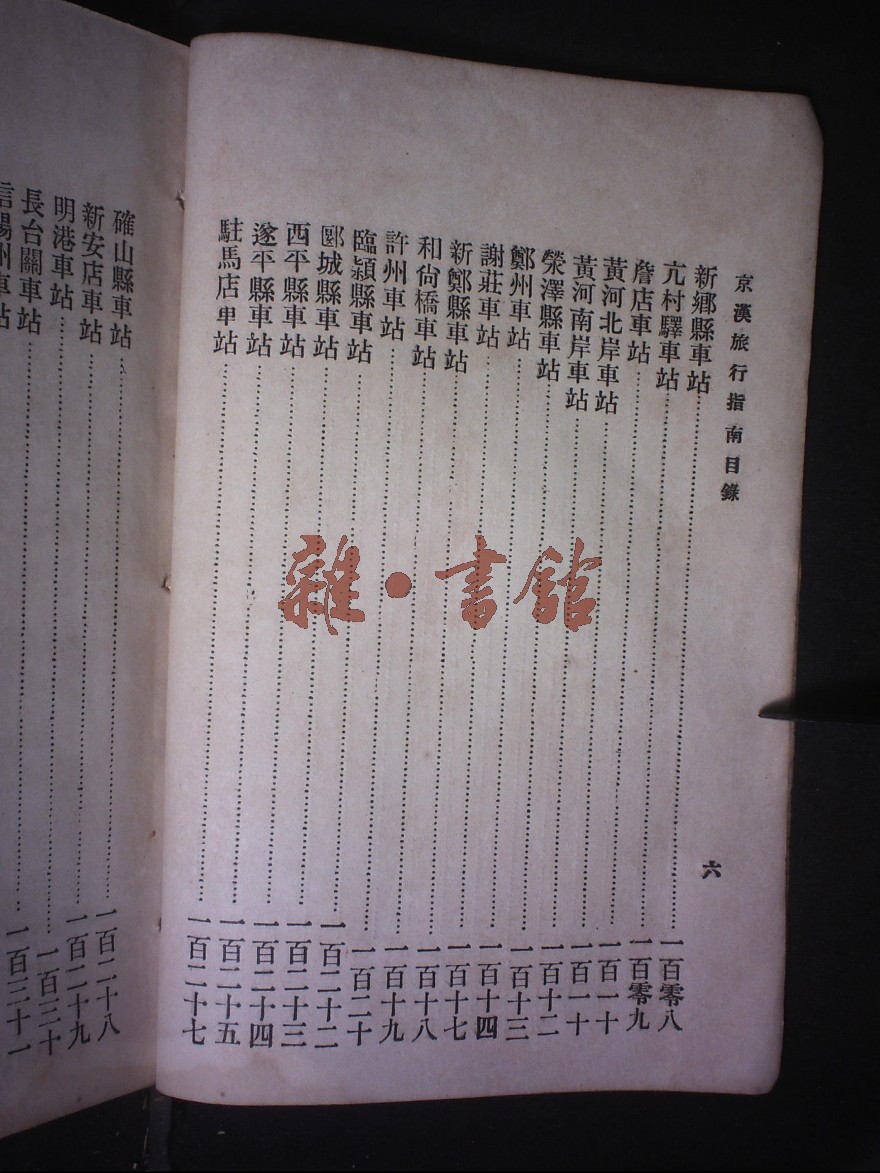 京漢旅行指南目錄 六
新鄉縣車站……一百零八
亢村驛車站……一百零九
詹店車站……一百一十
黃河北岸車站……一百一十
黃河南岸車站……一百十二
滎澤縣車站……一百十三
鄭州車站……一百十四
謝莊車站……一百十七
新鄭縣車站……一百十八
和尙橋車站……一百十九
許州車站……一百二十
臨潁縣車站……一百二十二
郾城縣車站……一百二十三
西平縣車站……一百二十四
遂平縣車站……一百二十五
駐馬店車站……一百二十七
確山縣車站……一百二十八
新安店車站……一百二十九
明港車站……一百三十
長台關車站……一百三十一
信陽州車站
雜·書館